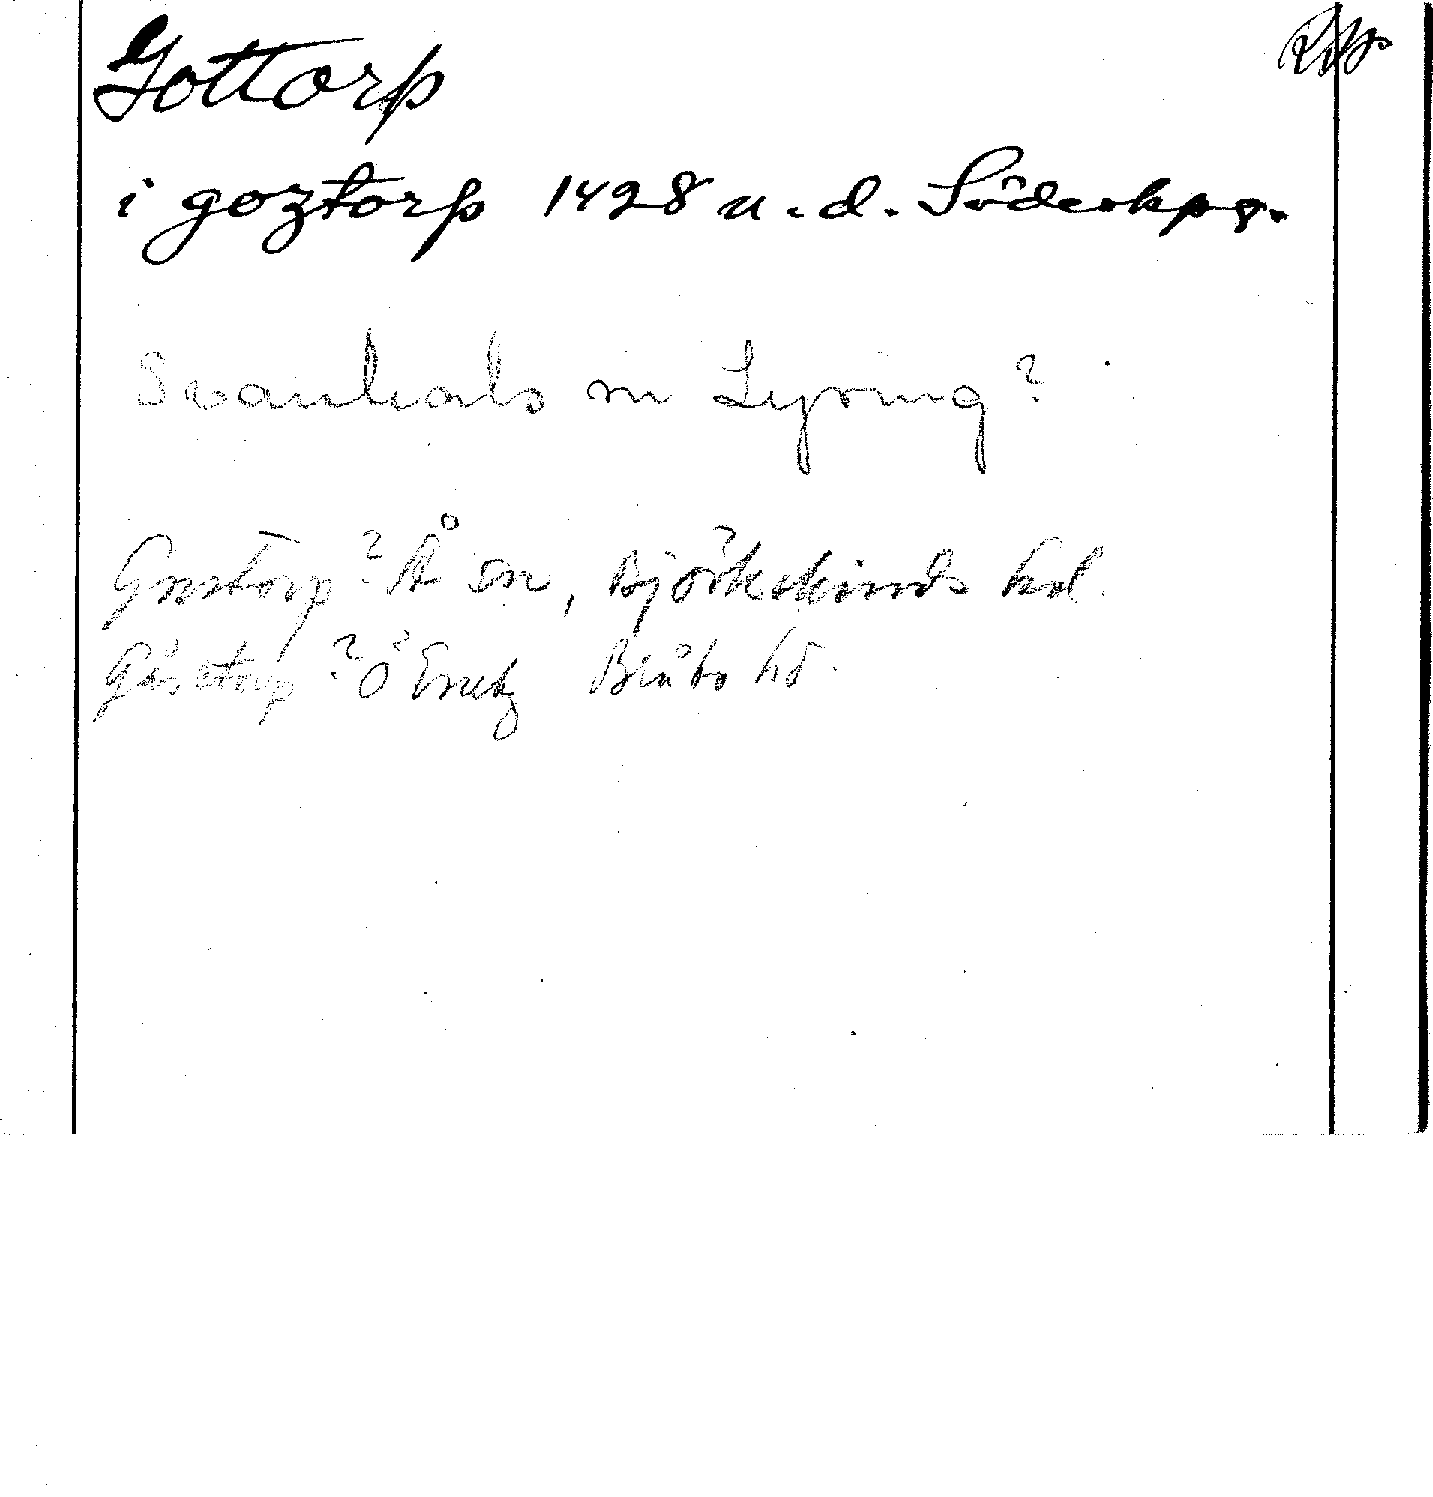 Gottorp
i goztorp 1428 u.d. Söderkpg.
Svanhals sn Lysing?
Gostorp? Å sn, Björkekinds hd.
Gåsetorp? Ö Eneby Bråbo hd.